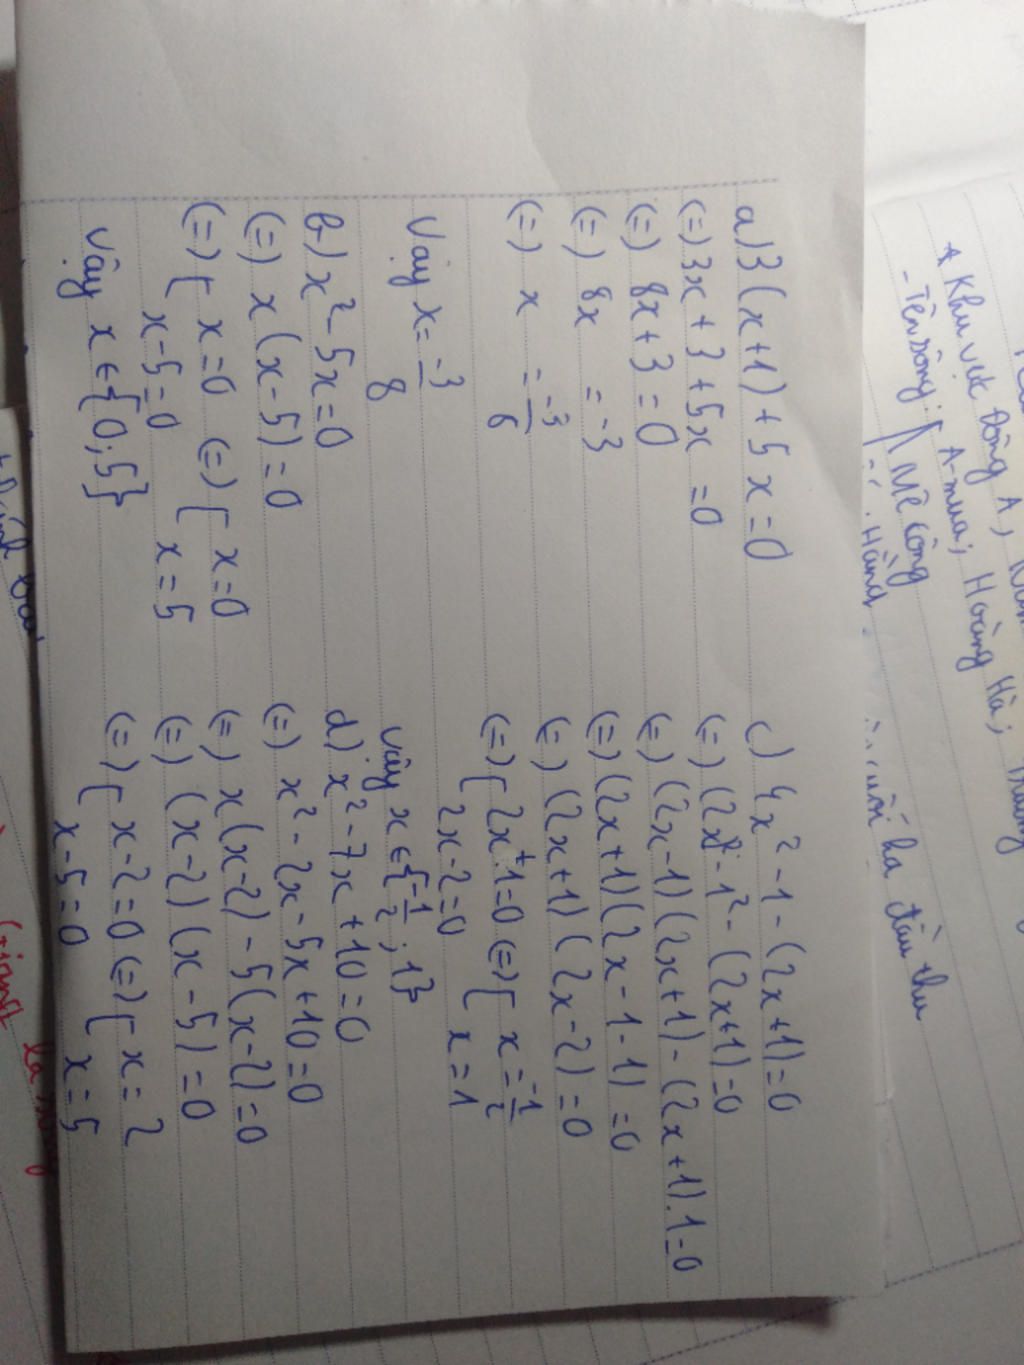 a) 3(x+1)+5x=0
(=) 3x+3+5x =0
(=) 8x+3=0
(=) 8x = -3
(=) x = -3/6
Vậy x= -3/8
b) x²-5x=0
(=) x(x-5)=0
(=) [ x=0 (=) [ x=0
x-5=0 x=5
Vậy x∈{0;5}
c) 4x²-1-(2x+1)=0
(=) (2x)²-1²-(2x+1)=0
(=) (2x-1)(2x+1)-(2x+1).1=0
(=) (2x+1)(2x-1-1)=0
(=) (2x+1)(2x-2)=0
(=) [ 2x+1=0 (=) [ x= -1/2
2x-2=0 x=1
Vậy x∈{-1/2;1}
d) x²-7x+10=0
(=) x²-2x-5x+10=0
(=) x(x-2)-5(x-2)=0
(=) (x-2)(x-5)=0
(=) [ x-2=0 (=) [ x=2
x-5=0 x=5
* Khu vực Đông A,
- Tên sông: A-mua; Hoàng Hà;
Mê công
Hằng